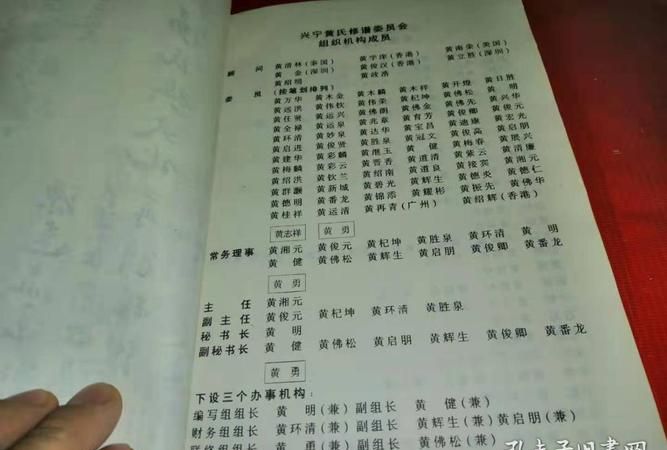 兴宁黄氏修谱委员会
组织机构成员
顾 问 黄清林(泰国) 黄学庠(香港) 黄南荣(美国)
黄 金(深圳) 黄俊汉(香港) 黄立胜(深圳)
黄绍明 黄政浩
委 员(按笔划排列)
黄万华 黄木金 黄木麟 黄木祥 黄开燎 黄日胜
黄远洪 黄伟钦 黄伟荣 黄杞坤 黄佛松 黄 明
黄任贤 黄远兴 黄佛朗 黄佛金 黄佛先 黄兴华
黄全禄 黄远泉 黄兆章 黄育芳 黄俊卿 黄俊元
黄环清 黄妙泉 黄达华 黄宝昌 黄迪康 黄宏光
黄启进 黄俊贤 黄胜泉 黄冠文 黄俊高 黄启朋
黄建华 黄彩麟 黄湛玉 黄 健 黄梅春 黄展兴
黄梅麟 黄彩云 黄晋香 黄道清 黄紫云 黄清廉
黄绍洪 黄钦兰 黄绍南 黄道良 黄接宾 黄湘元
黄群灏 黄新城 黄碧光 黄辉生 黄德炎 黄德仁
黄德明 黄番龙 黄锦添 黄耀彬 黄振先 黄佛华
黄桂祥 黄远清 黄再青(广州) 黄绍辉(香港)
黄志祥 黄 勇
常务理事 黄湘元 黄俊元 黄杞坤 黄胜泉 黄环清 黄 明
黄 健 黄佛松 黄辉生 黄启朋 黄俊卿 黄番龙
黄 勇
主 任 黄湘元
副主任 黄俊元 黄杞坤 黄环清 黄胜泉
秘书长 黄 明
副秘书长 黄 健 黄佛松 黄启朋 黄辉生 黄俊卿 黄番龙
黄 勇
下设三个办事机构：
编写组组长 黄 明(兼) 副组长 黄 健(兼)
财务组组长 黄环清(兼) 副组长 黄辉生(兼) 黄启朋(兼)
联络组组长 黄 勇(兼) 副组长 黄佛松(兼)
孔夫子旧书网